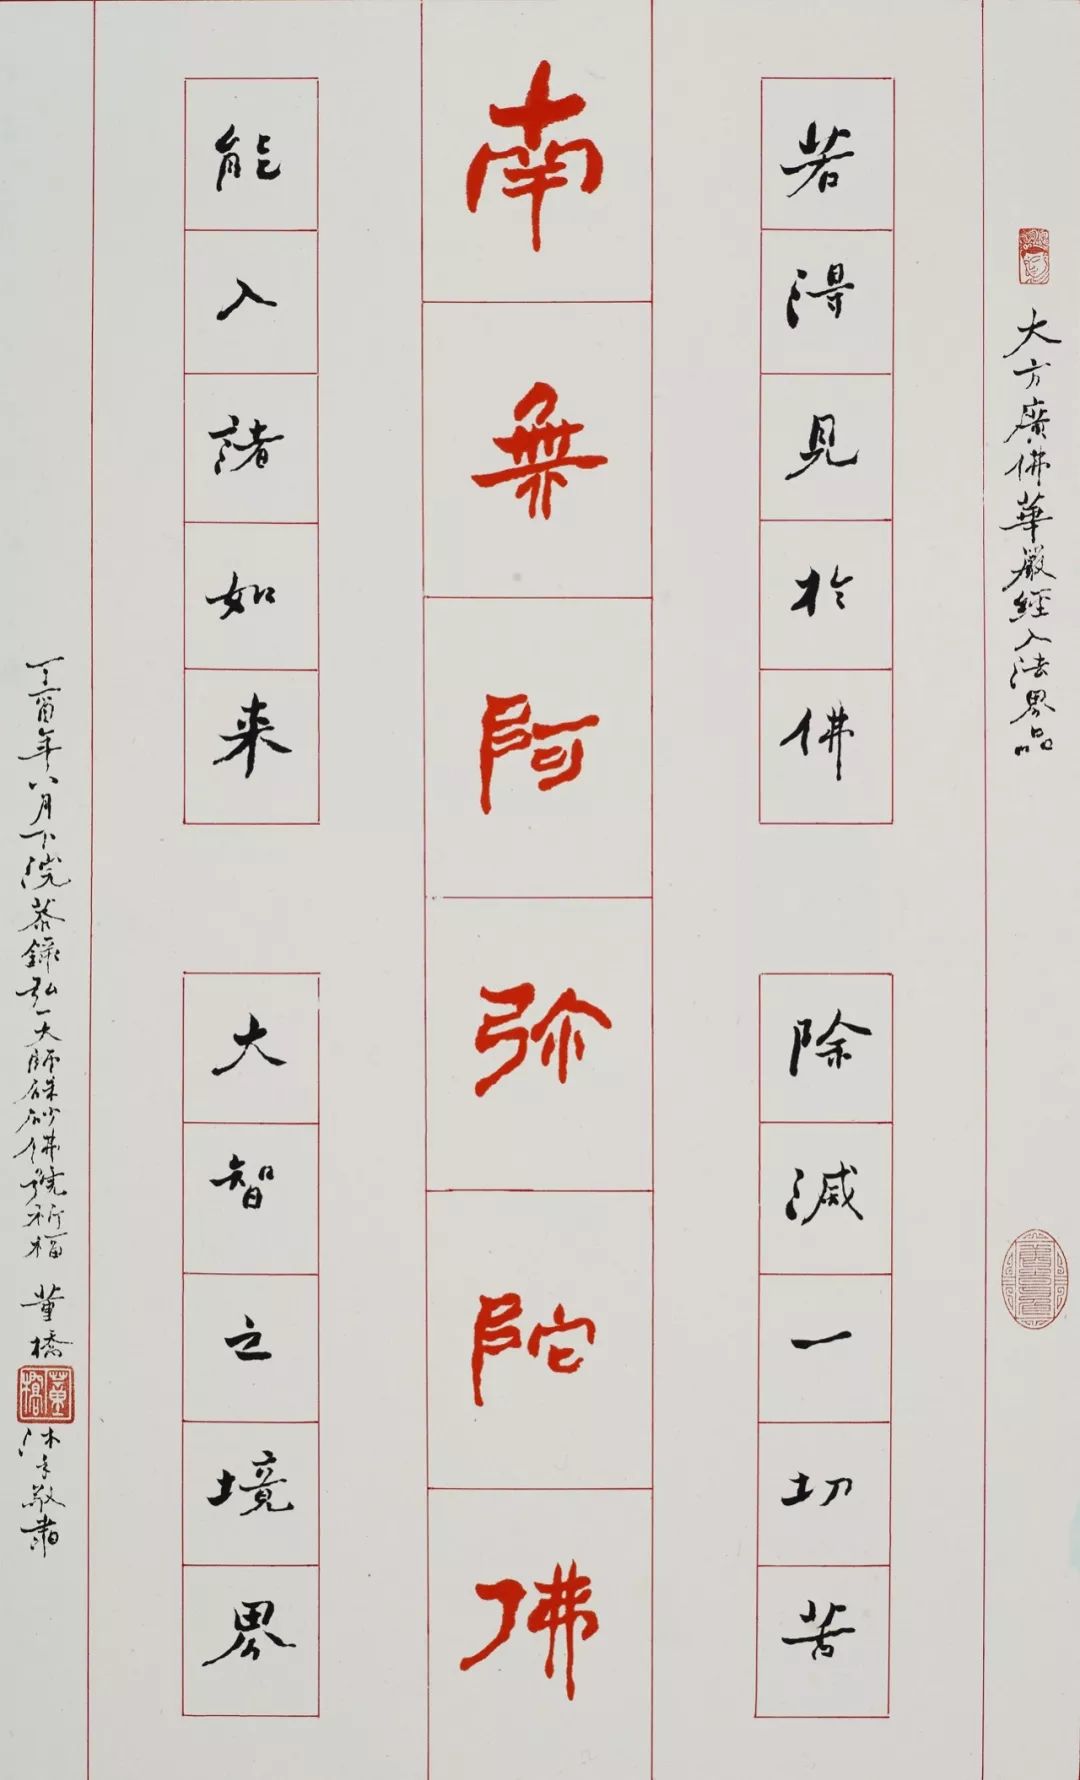 大方廣佛華嚴經入法界品
若得見於佛
除滅一切苦
南無阿弥陀佛
能入諸如来
大智之境界
丁酉年八月下浣恭錄弘一大師硃砂佛號祈福 董橋
董橋
沐手敬肅